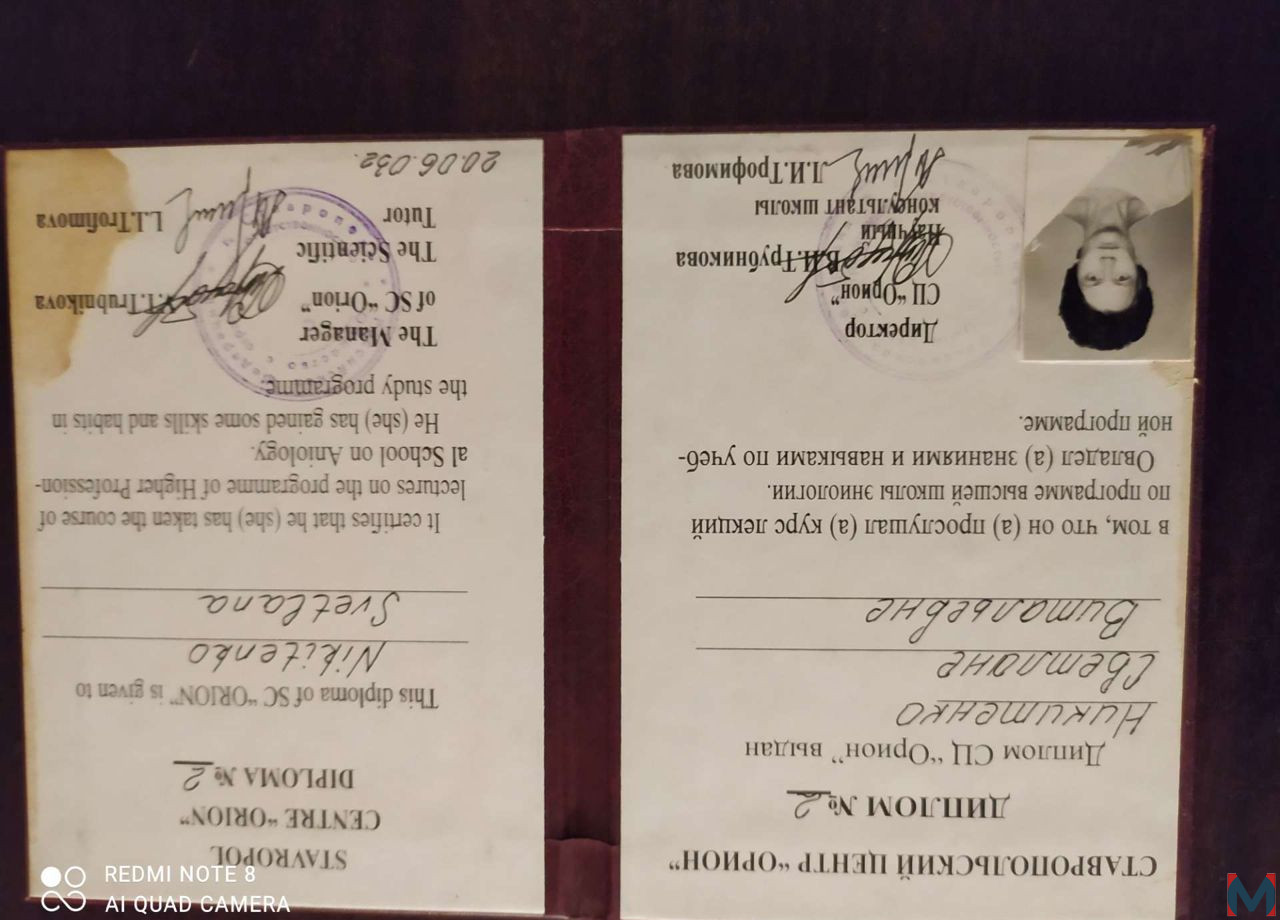 СТАВРОПОЛЬСКИЙ ЦЕНТР “ОРИОН”
ДИПЛОМ № 2
Диплом СЦ “Орион” выдан
Никитенко
Светлане
Витальевне
в том, что он (а) прослушал (а) курс лекций
по программе высшей школы эниологии.
Овладел (а) знаниями и навыками по учеб-
ной программе.
Директор
СЦ “Орион”
В.И.Трубникова
Научный
консультант школы
Л.И.Трофимова
STAVROPOL
CENTRE “ORION”
DIPLOMA № 2
This diploma of SC “ORION” is given to
Nikitenko
Svetlana
It certifies that he (she) has taken the course of
lectures on the programme of Higher Profession-
al School on Aniology.
He (she) has gained some skills and habits in
the study programme.
The Manager
of SC “Orion” V.I.Trubnikova
The Scientific
Tutor L.I.Trofimova
20.06.03г.
REDMI NOTE 8
AI QUAD CAMERA
M